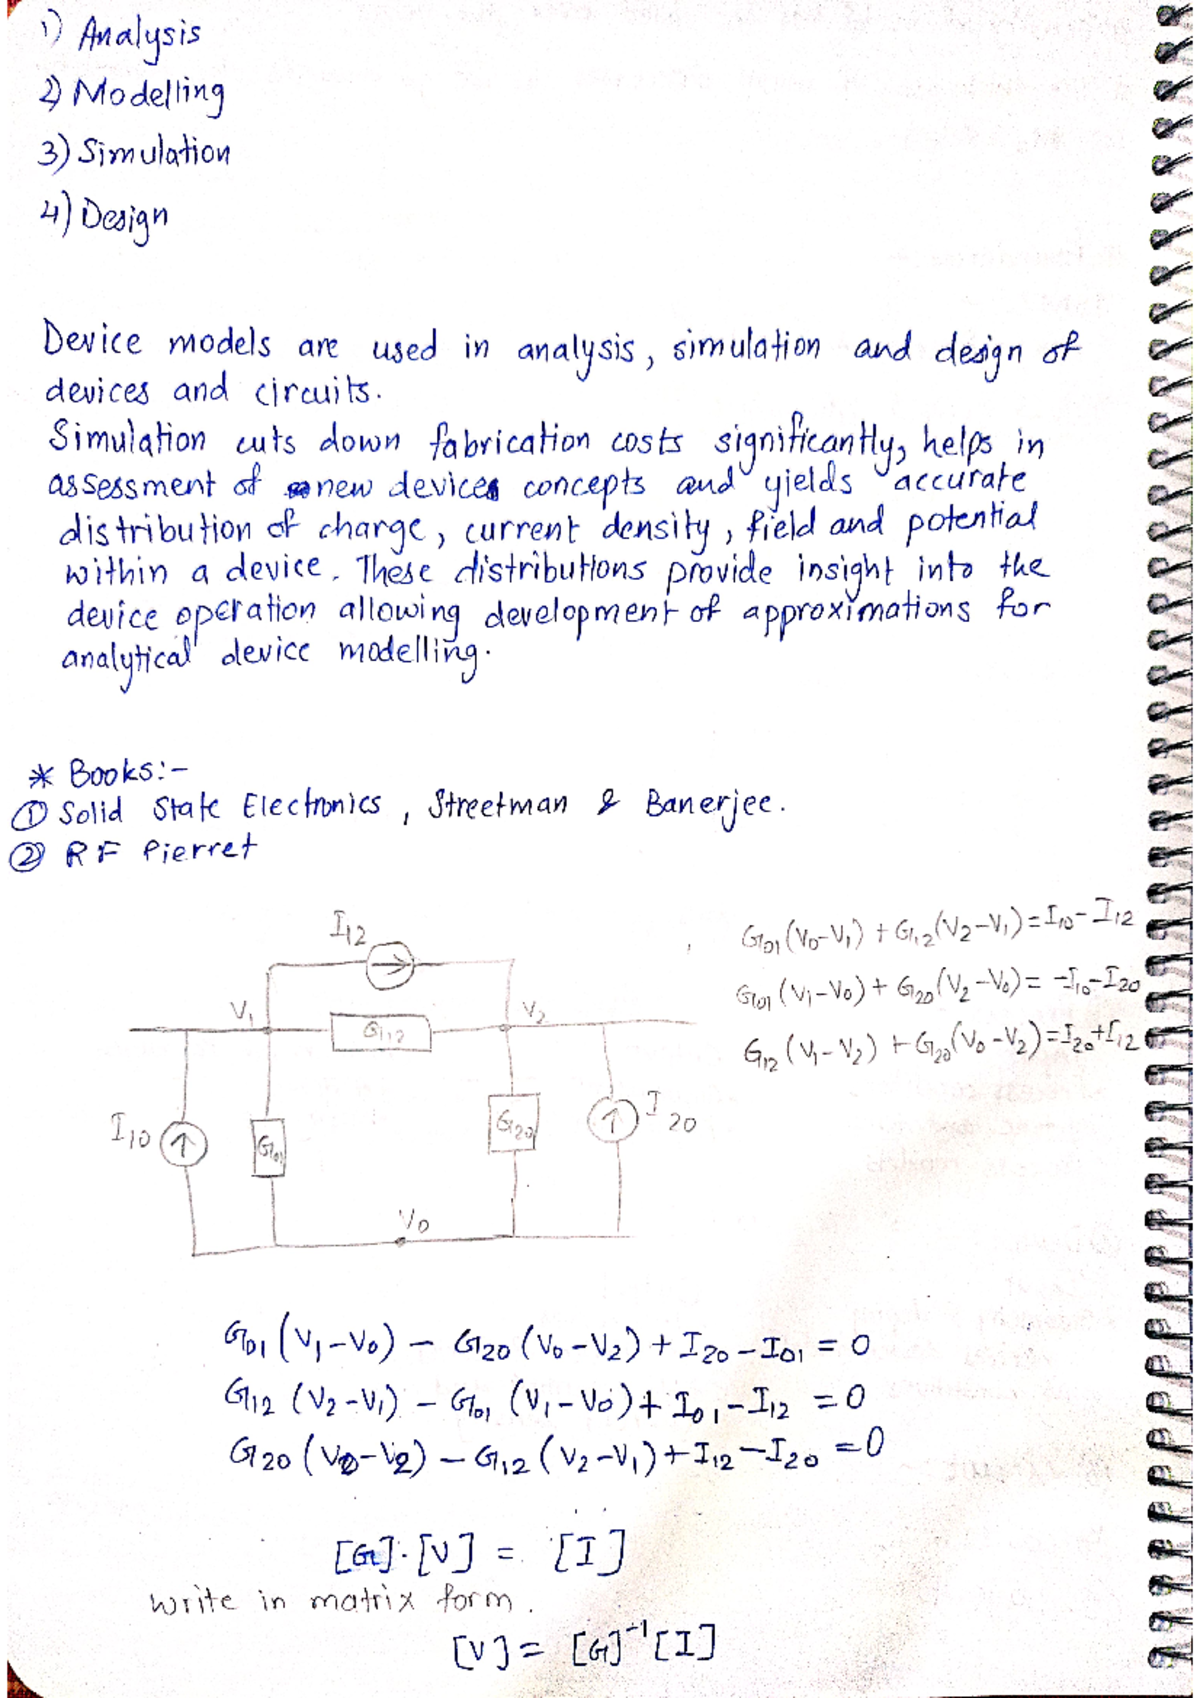 1) Analysis
2) Modelling
3) Simulation
4) Design
Device models are used in analysis, simulation and design of
devices and circuits.
Simulation cuts down fabrication costs significantly, helps in
assessment of new devices concepts and yields accurate
distribution of charge, current density, field and potential
within a device. These distributions provide insight into the
device operation allowing development of approximations for
analytical device modelling.
* Books:-
① Solid State Electronics, Streetman & Banerjee.
② RF Pierret
I12
G01 (V0-V1) + G12 (V2-V1) = I10 - I12
G01 (V1-V0) + G20 (V2-V0) = -I10 - I20
G12 (V1-V2) + G20 (V0-V2) = I20 + I12
V1
G12
V2
I10
G01
G20
I20
V0
G01 (V1-V0) - G20 (V0-V2) + I20 - I01 = 0
G12 (V2-V1) - G01 (V1-V0) + I01 - I12 = 0
G20 (V0-V2) - G12 (V2-V1) + I12 - I20 = 0
[G]·[V] = [I]
write in matrix form.
[V] = [G]⁻¹[I]